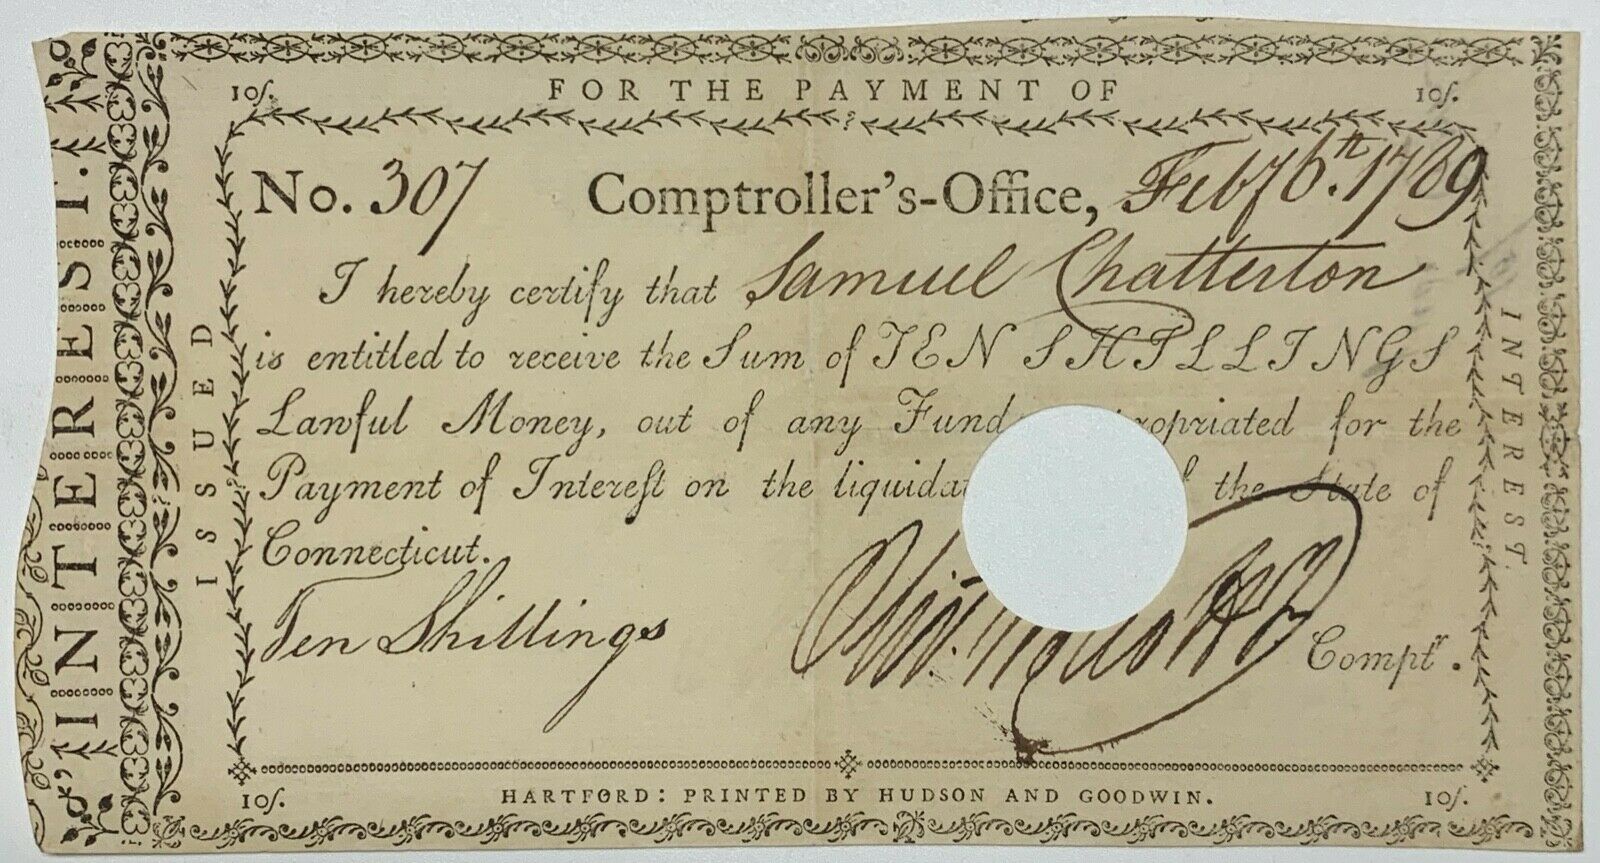 INTEREST.
ISSUED
10ſ. FOR THE PAYMENT OF 10ſ.
No. 307 Comptroller's-Office, Feby 6th. 1789
I hereby certify that Samuel Chatterton
is entitled to receive the Sum of TEN SHILLINGS
Lawful Money, out of any Fund ropriated for the
Payment of Intereſt on the liquidat the State of
Connecticut.
Ten Shillings
Oliv. Wolcott Jr Comptr.
INTEREST.
10ſ. HARTFORD: PRINTED BY HUDSON AND GOODWIN. 10ſ.